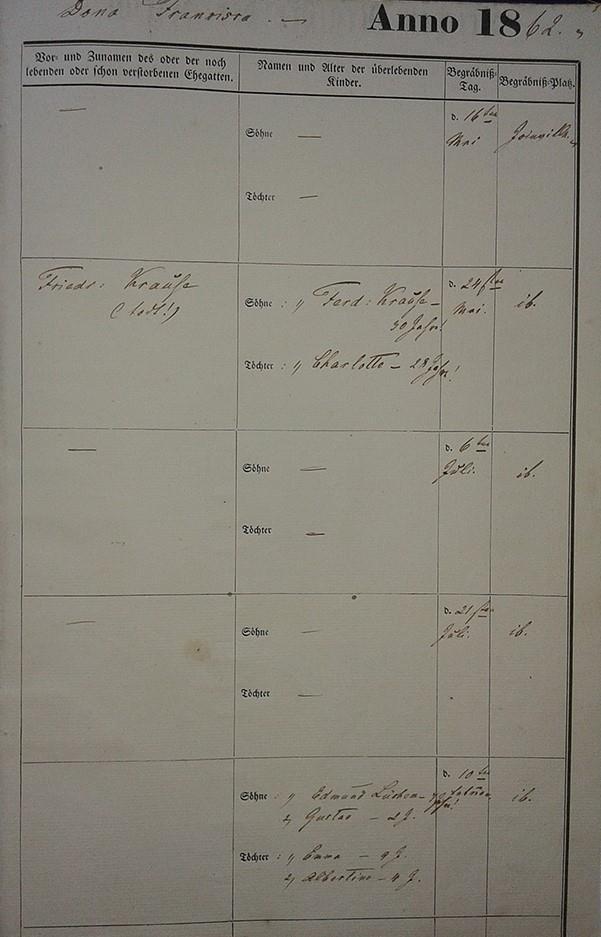 Dona Francisca. —
Anno 1862.
Vor- und Zunamen des oder der noch
lebenden oder schon verstorbenen Ehegatten.
Namen und Alter der überlebenden
Kinder.
Begräbniß-
Tag.
Begräbniß-Platz.
—
Söhne —
Töchter —
d. 16ten
Mai
Joinville.
Friedr: Krauſe
(todt!)
Söhne : 1, Ferd: Krauſe –
30 Jahr!
Töchter : 1, Charlotte – 28 Jahr!
d. 24sten
Mai.
ib.
—
Söhne —
Töchter —
d. 6ten
Juli.
ib.
—
Söhne —
Töchter —
d. 21sten
Juli.
ib.
Söhne : 1, Edmund
2, Gustav – 2 J.
Töchter : 1, Emma – 9 J.
2, Albertine – 4 J.
d. 10ten
ib.